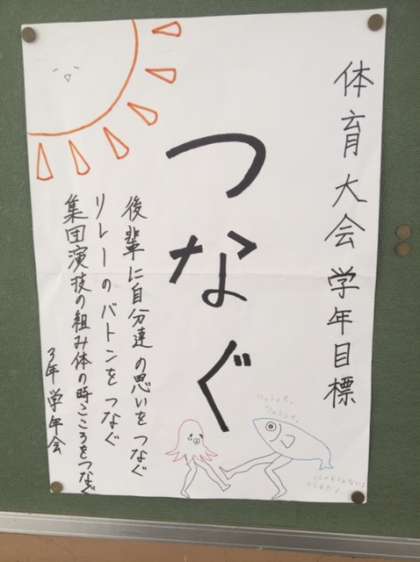 体育大会学年目標
つなぐ
後輩に自分達の思いをつなぐ
リレーのバトンをつなぐ
集団演技の組み体の時こころをつなぐ
3年学年会